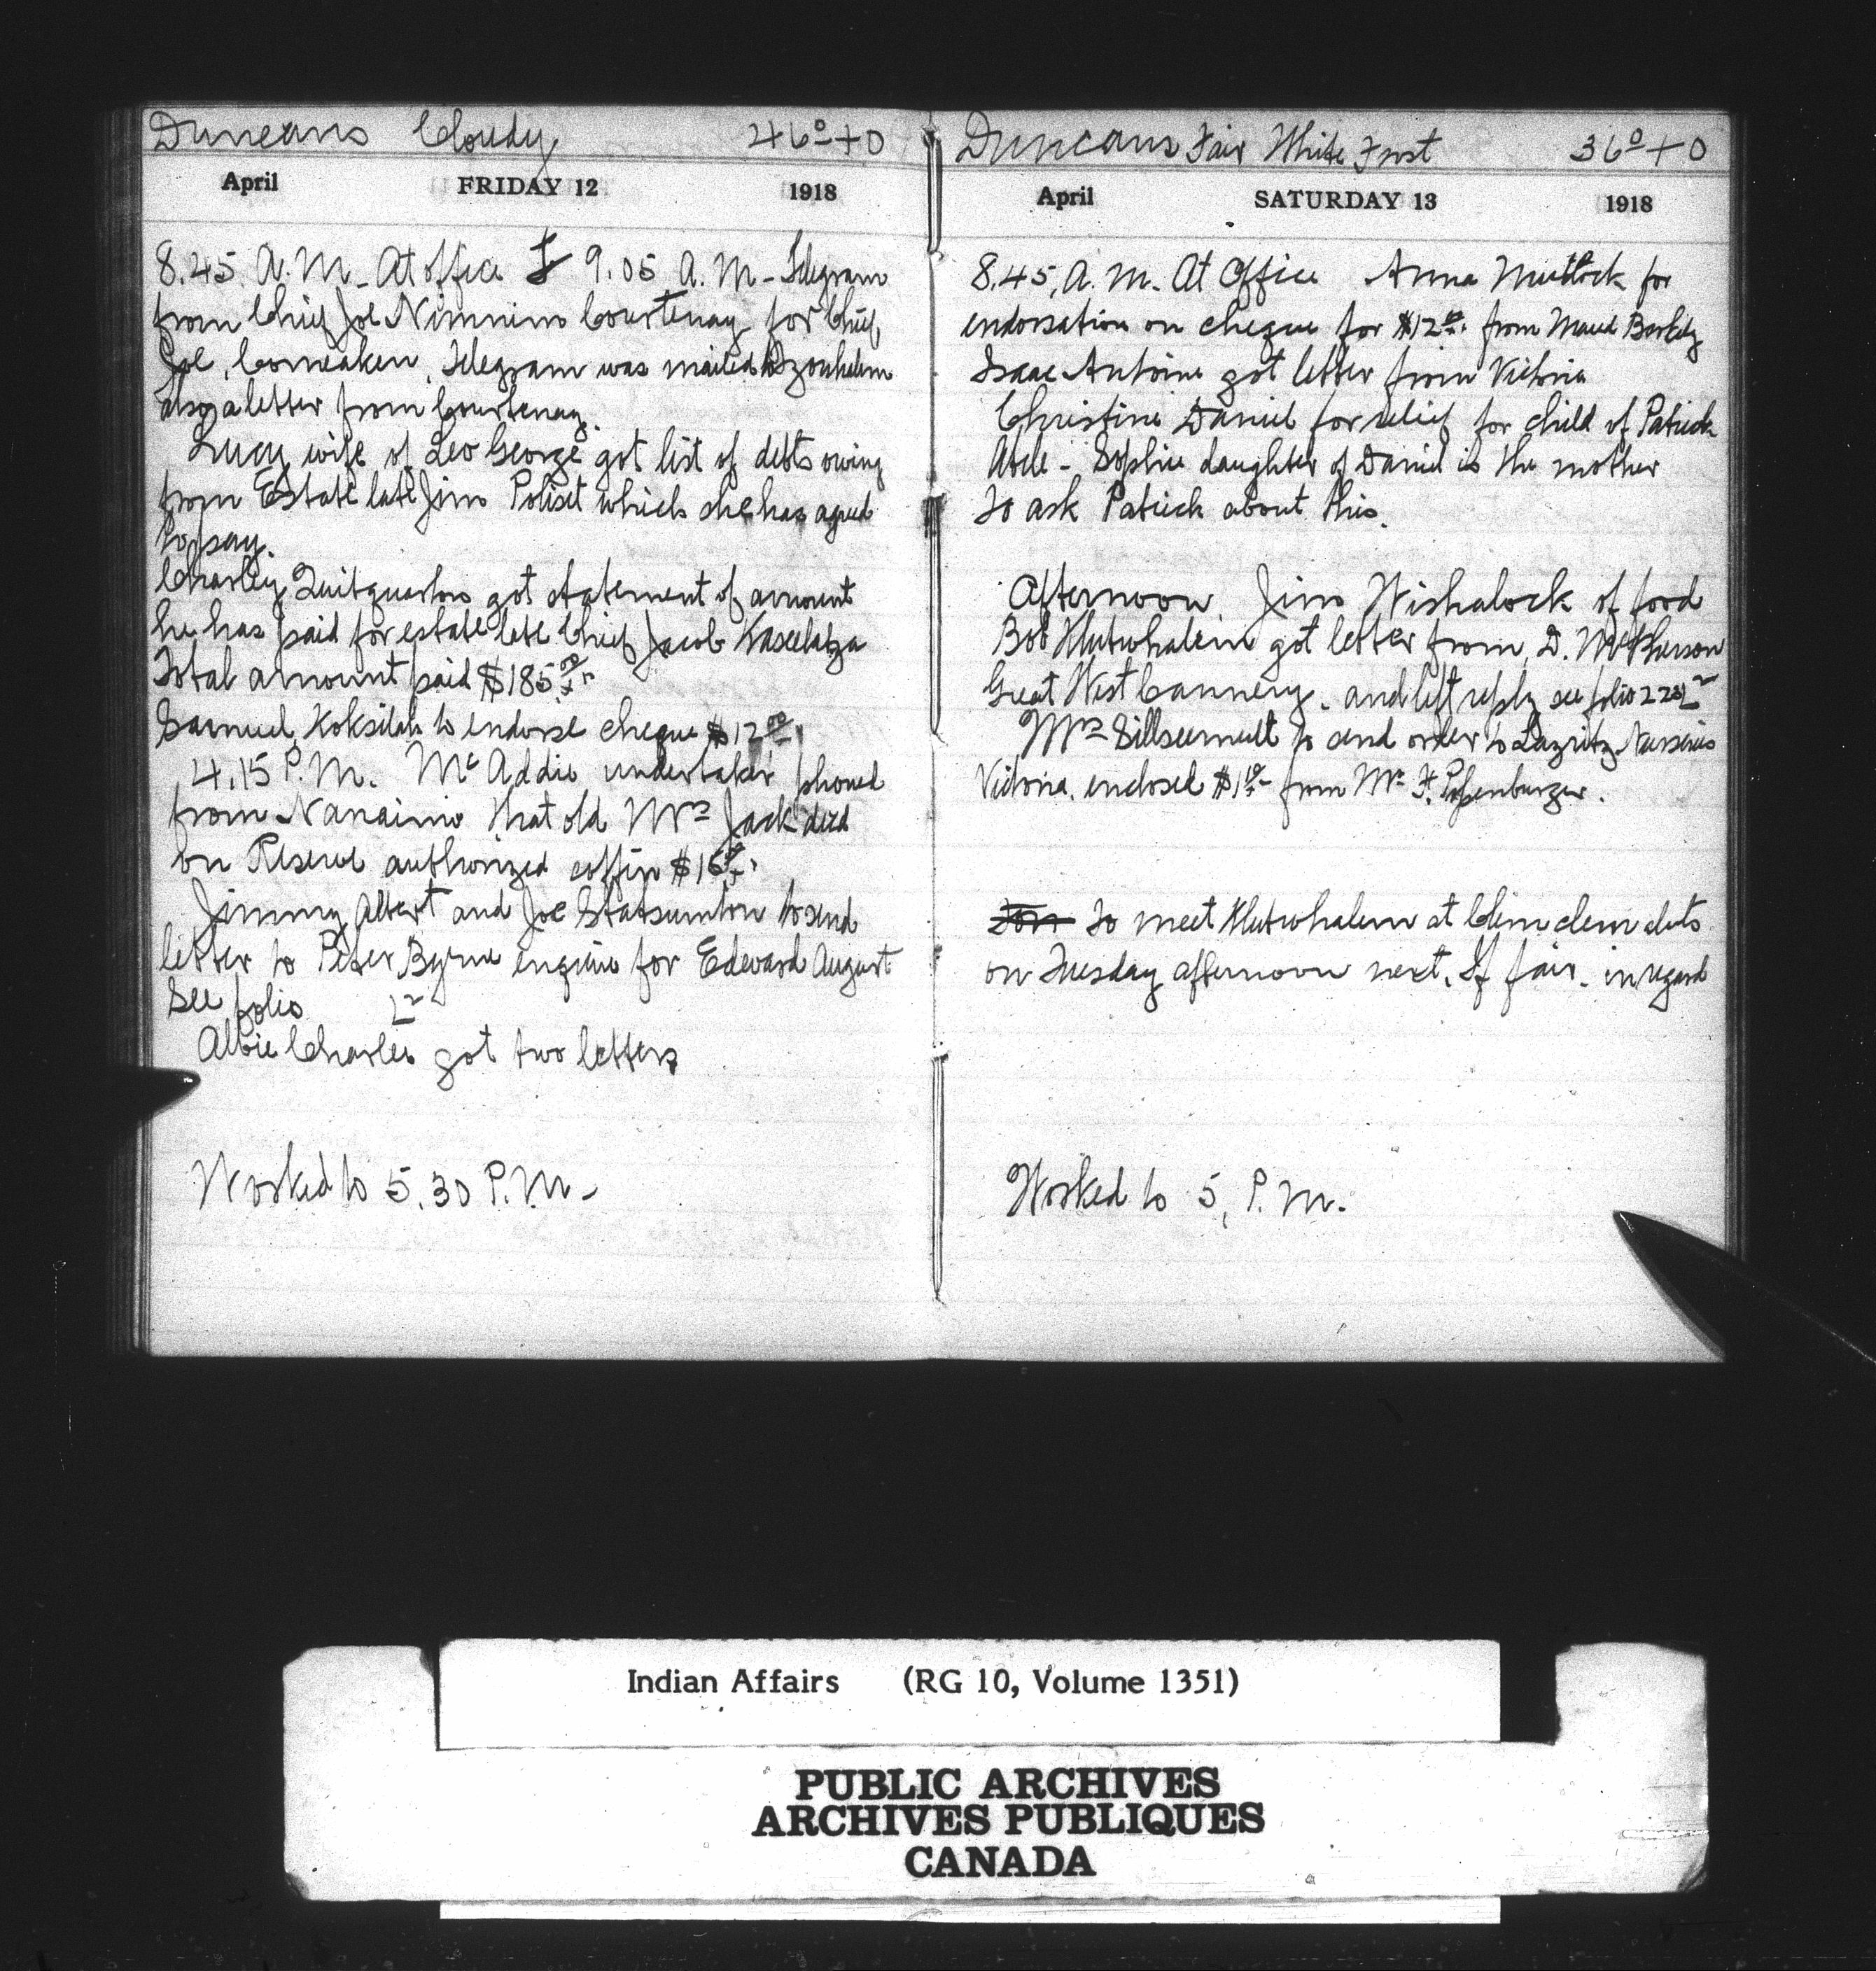 Duncans Cloudy 46°+0
April FRIDAY 12 1918
8.45. A.M. At office 9.05 A.M. Telegram
from Chief Joe Nimnim Courtenay for Chief
Joe, Comeaken, Telegram was mailed to Tzouhalem
also a letter from Courtenay.
Lucy wife of Leo George got list of debts owing
from Estate late Jim Poliset which she has agreed
to pay.
Charley Quitquarton got statement of amount
he has paid for estate late Chief Jacob
Total amount paid $185.00
Samuel Koksilah to endorse cheque $12.00
4.15 P.M. McAddie undertaker phoned
from Nanaimo that old Mrs Jack died
on Reserve authorized coffin $15.00
Jimmy Albert and Joe Statsumton to send
letter to Peter Byrne engine for Edward August
See folio Lr
Albie Charles got two letters
Worked to 5.30 P.M.
Duncans Fair White Frost 36°+0
April SATURDAY 13 1918
8.45, A.M. At Office Anna for
endorsation on cheque for $12.00 from Maud
Isaac Antoine got letter from Victoria
Christine Daniel for relief for child of Patrick
Abel - Sophie daughter of Daniel is the mother
to ask Patrick about this.
Afternoon. Jim Wishalock of food
Bob Klutwhalem got letter from, D. McPherson
Great West Cannery. and left reply see folio Lr
Mrs Sillseemult to send order to Layritz Nurseries
Victoria. enclosed from Mr F.
To meet Klutwhalem at Clemclemaluts
on Tuesday afternoon next. If fair. in regard
Worked to 5, P.M.
Indian Affairs (RG 10, Volume 1351)
PUBLIC ARCHIVES
ARCHIVES PUBLIQUES
CANADA